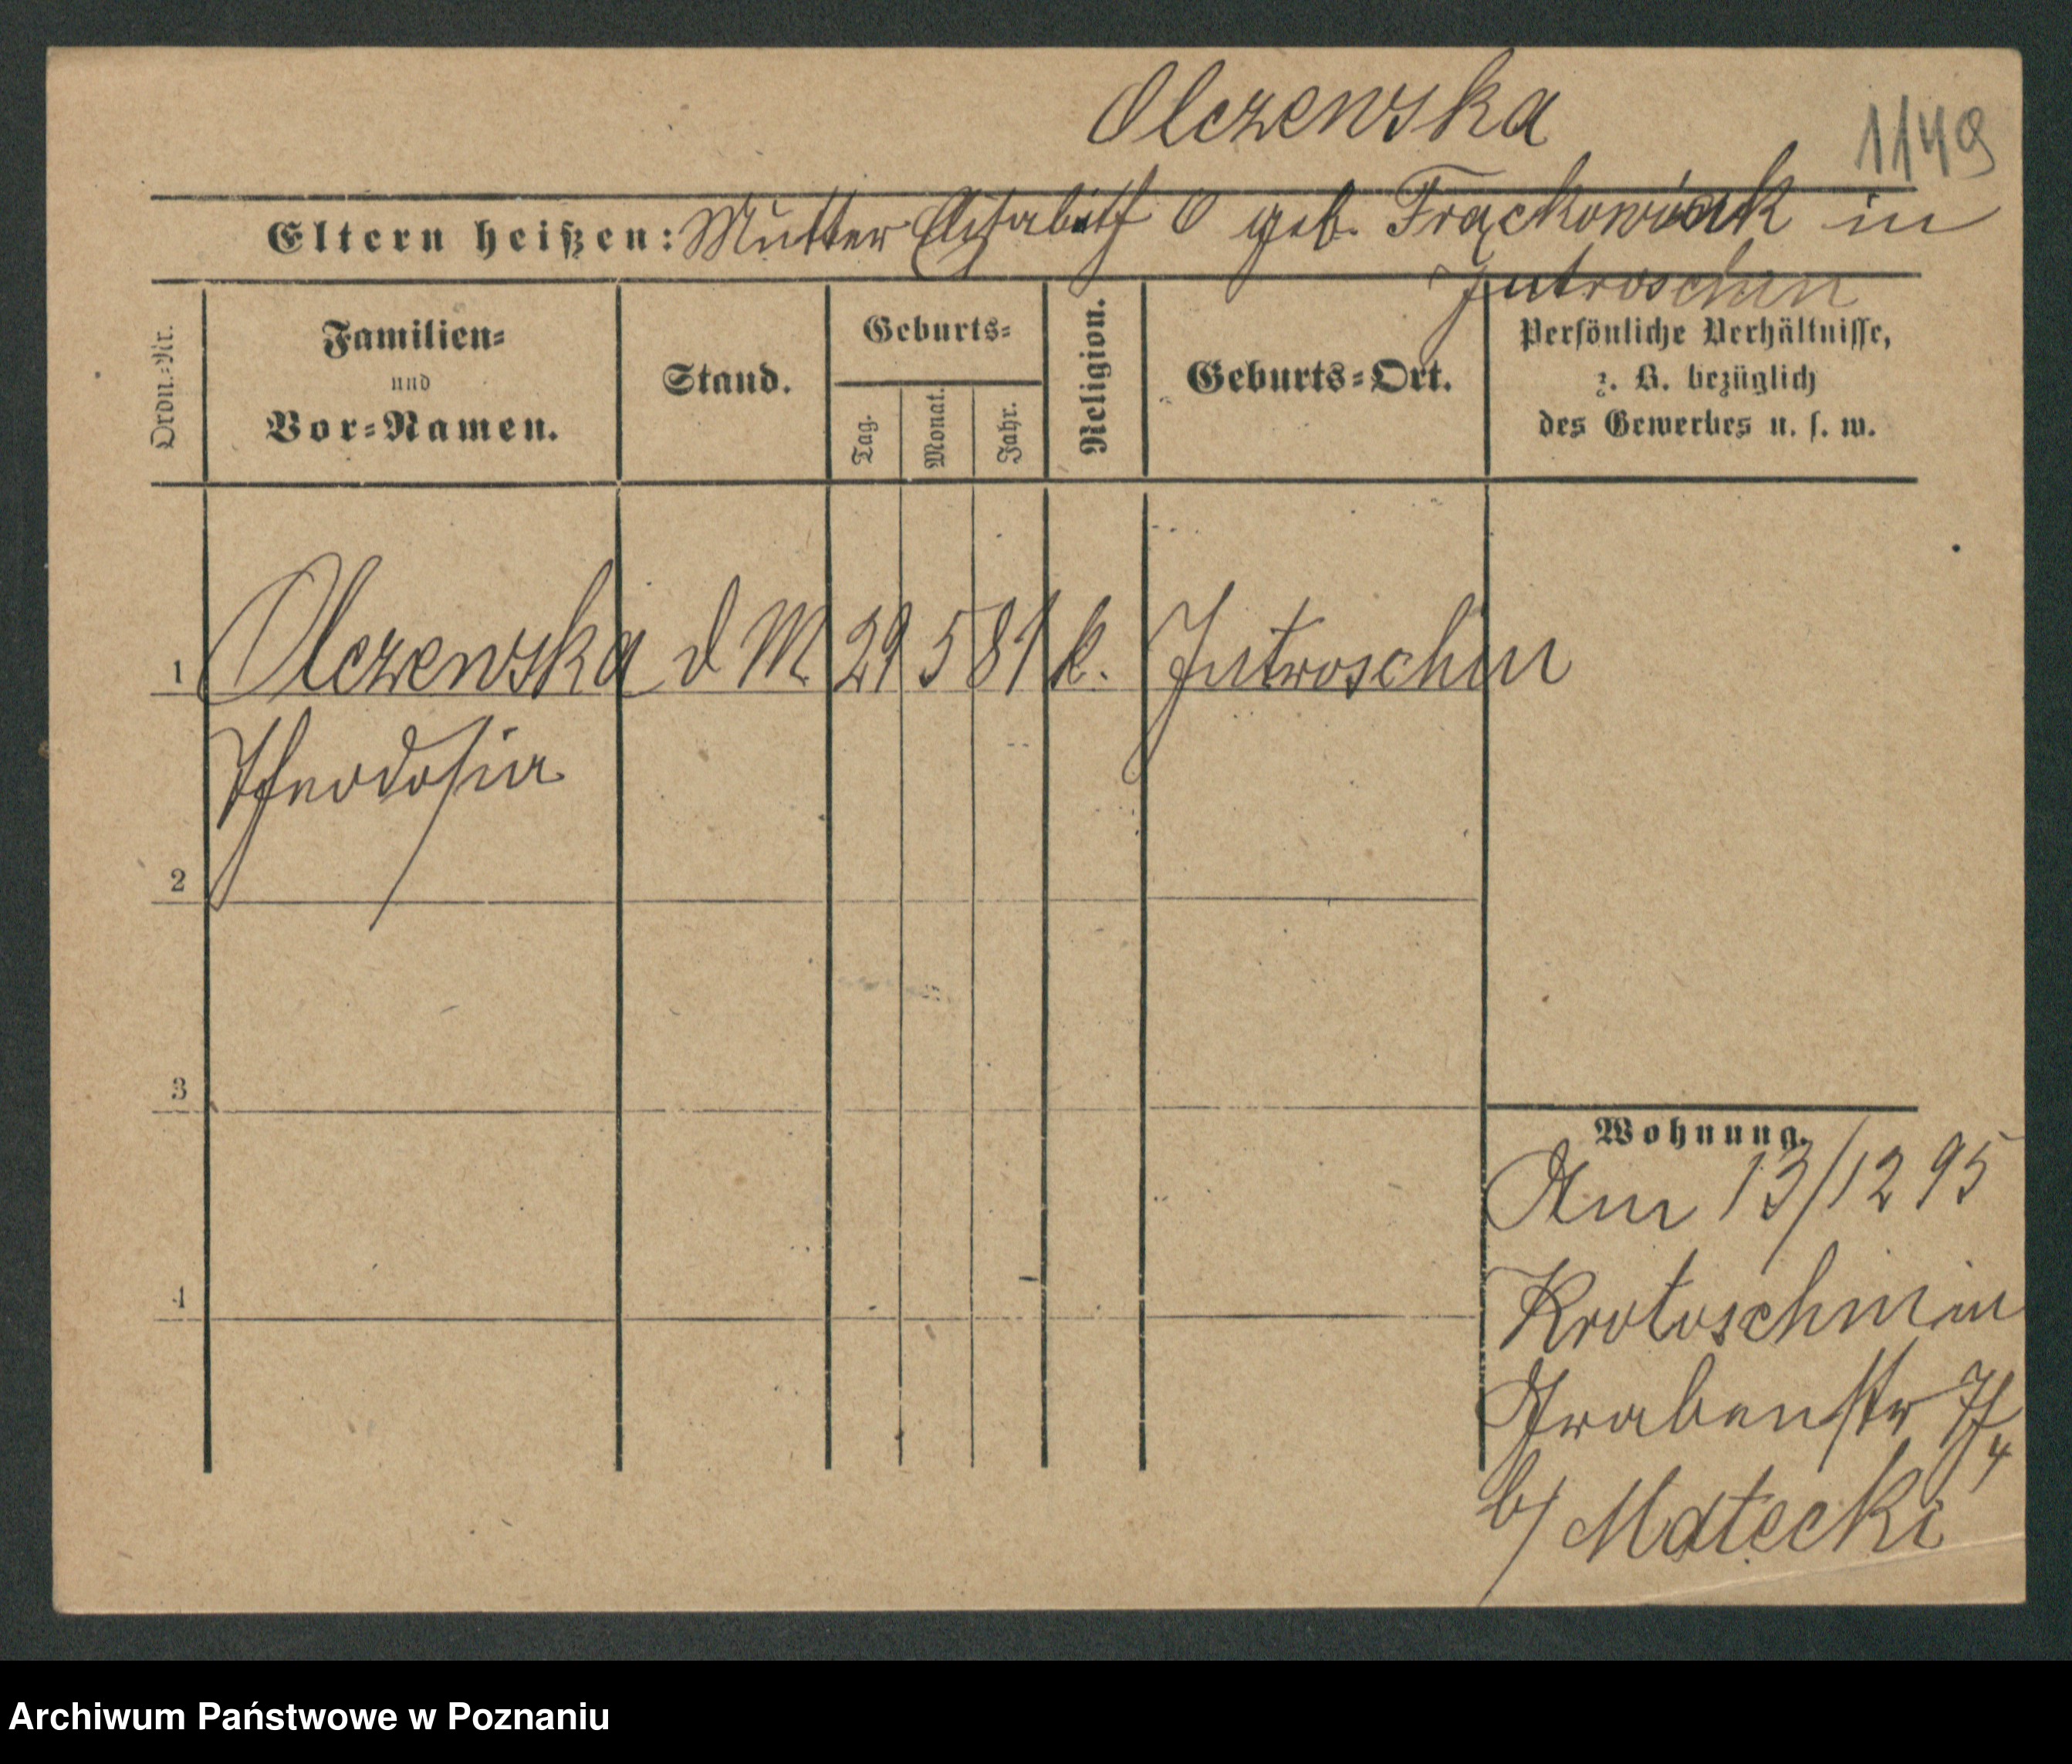 Olczewska
1149
Eltern heißen: Mutter Elisabeth O geb. Frąckowiak in
Jutroschin
Ordn.-Nr.
Familien-
und
Vor-Namen.
Stand.
Geburts-
Tag.
Monat.
Jahr.
Religion.
Geburts-Ort.
Persönliche Verhältnisse,
z. B. bezüglich
des Gewerbes u. s. w.
1 Olczewska d M 29 5 81 k. Jutroschin
Theodosia
2
3
4
Wohnung.
Am 13/12 95
Krotoschin in
Grabenstr
b/ Matecki
Archiwum Państwowe w Poznaniu